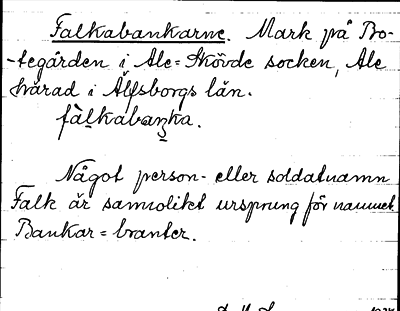 Falkabankarne. Mark på Bo-
-tegården i Ale=Skövde socken, Ale
härad i Älfsborgs län.
fàlkabaŋka.
Något person- eller soldatnamn
Falk är sannolikt ursprung för namnet.
Bankar = branter.